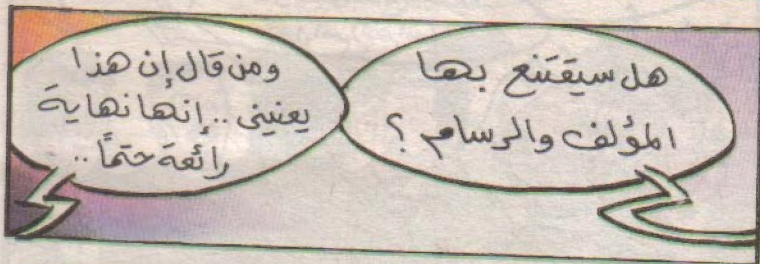 هل سيقتنع بها
المؤلف والرسام ؟
ومن قال إن هذا
يعنيني .. إنها نهاية
رائعة حتمًا ..